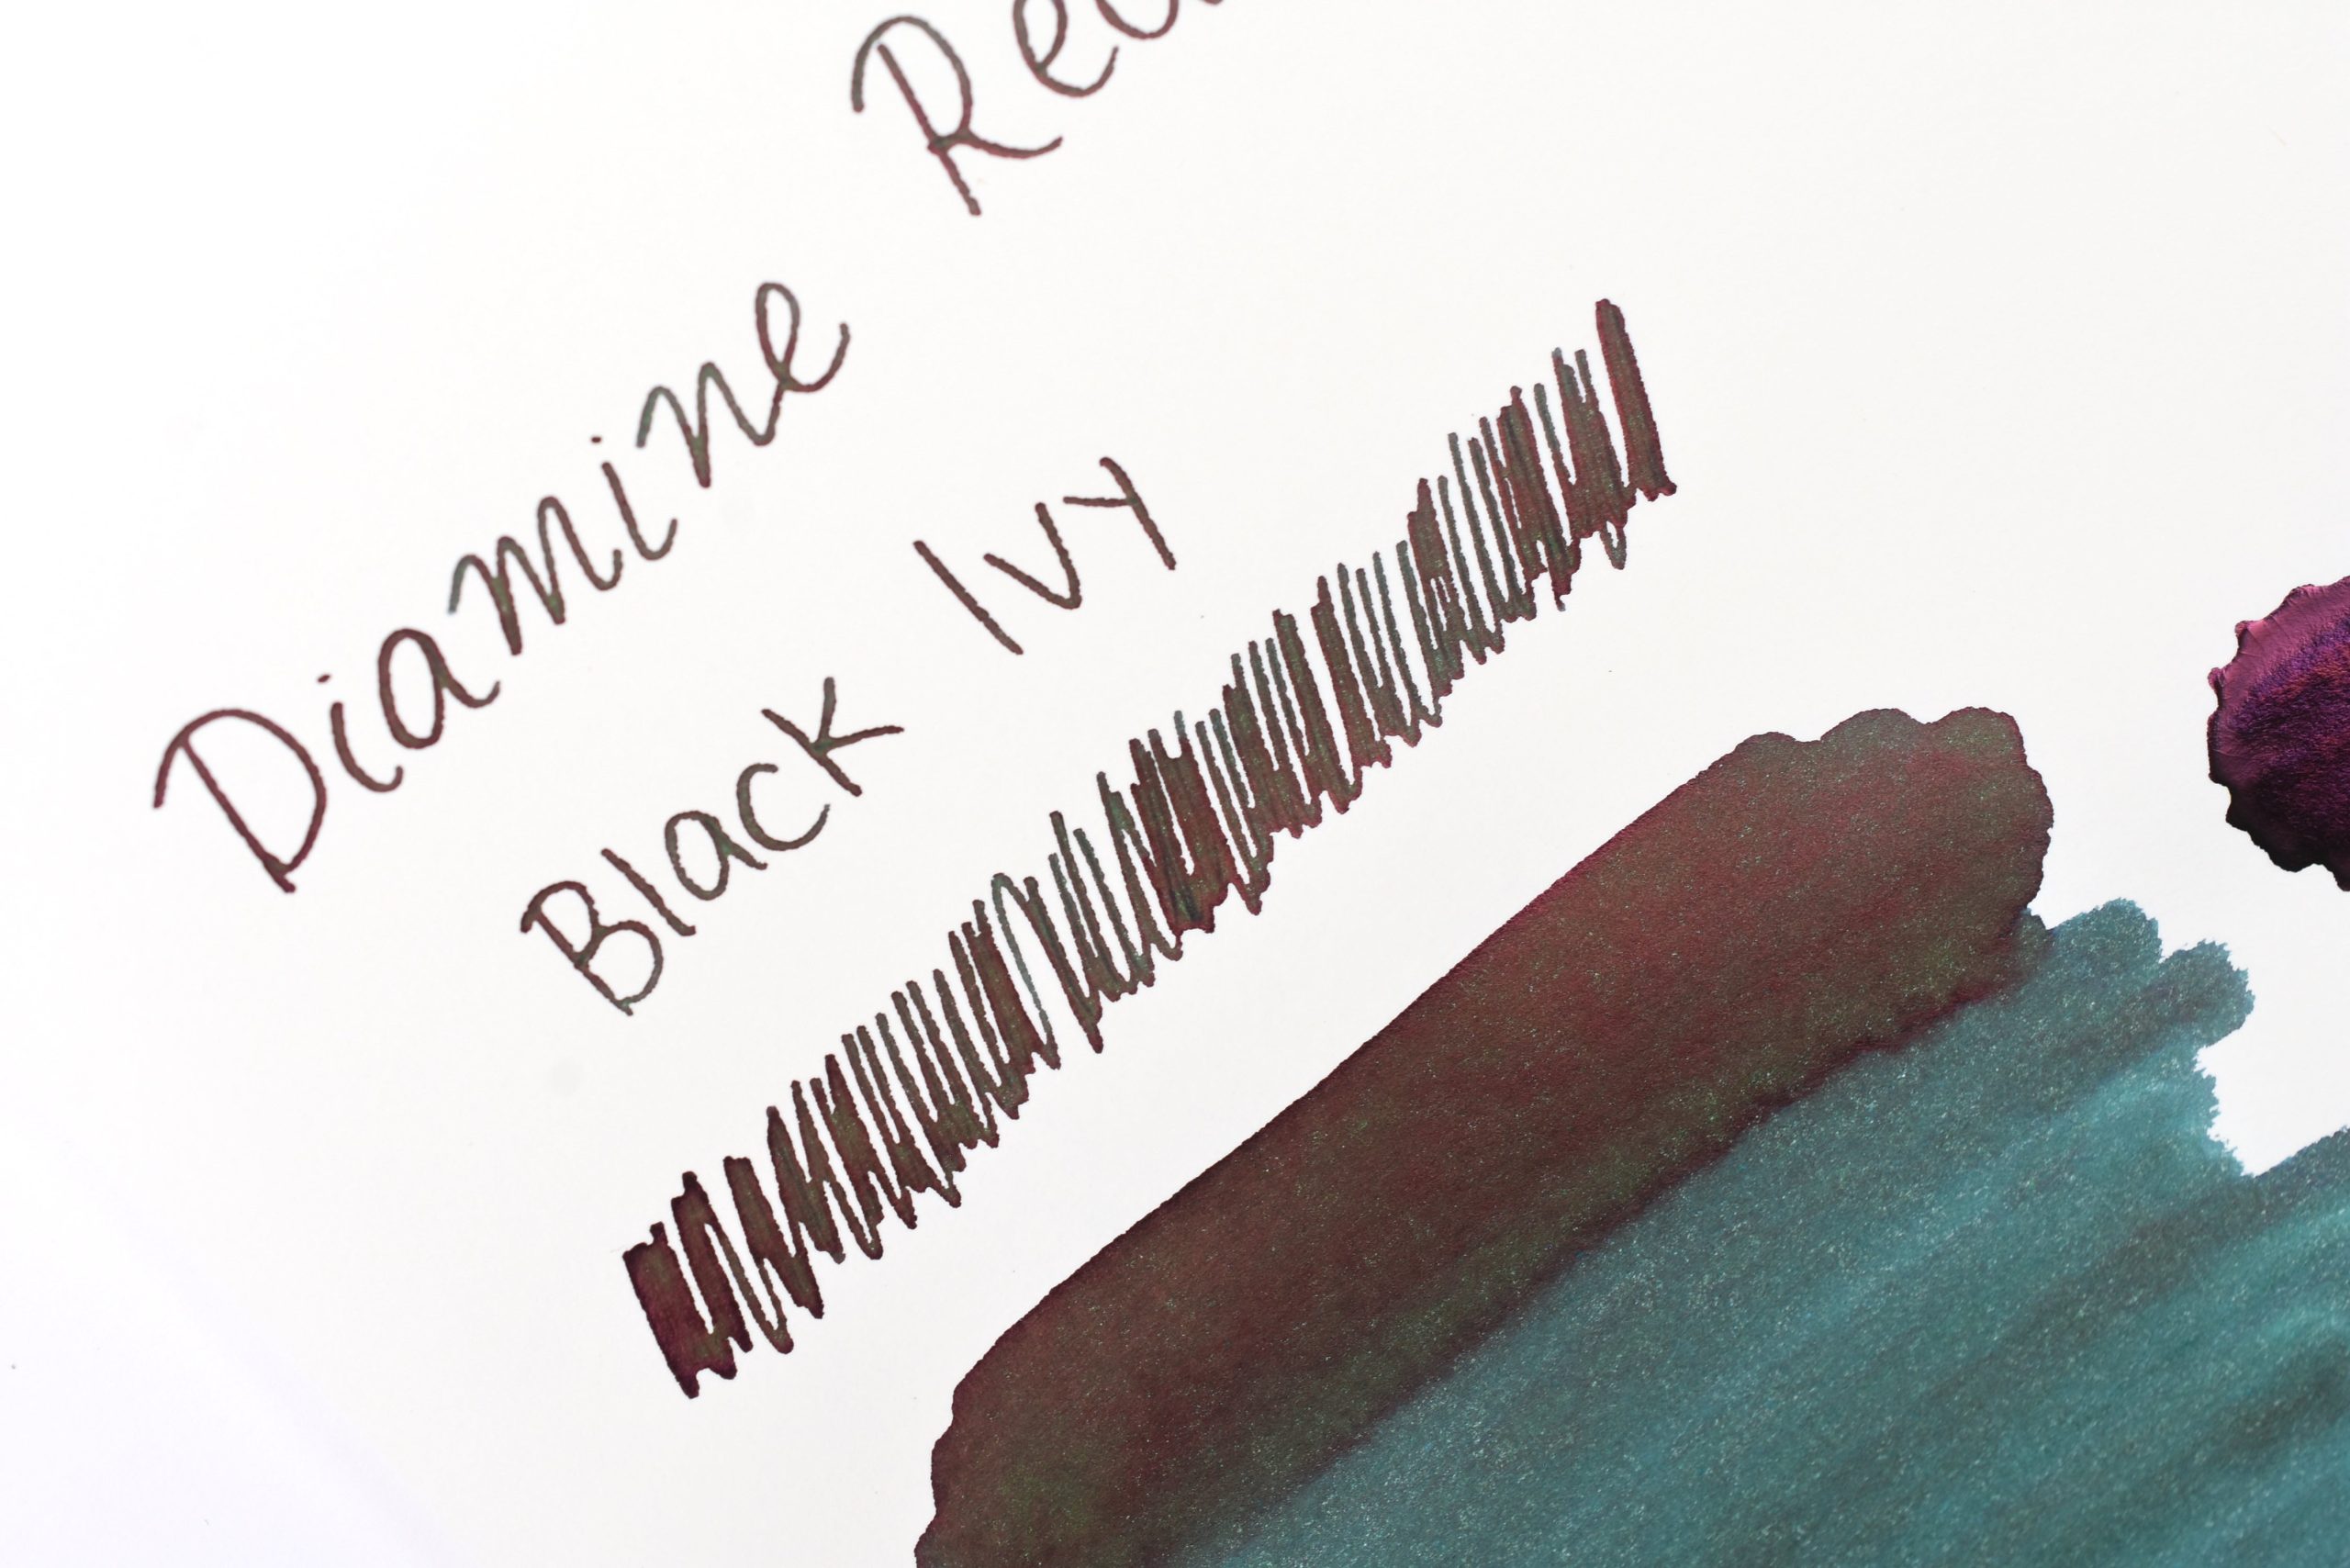 Diamine
Black Ivy